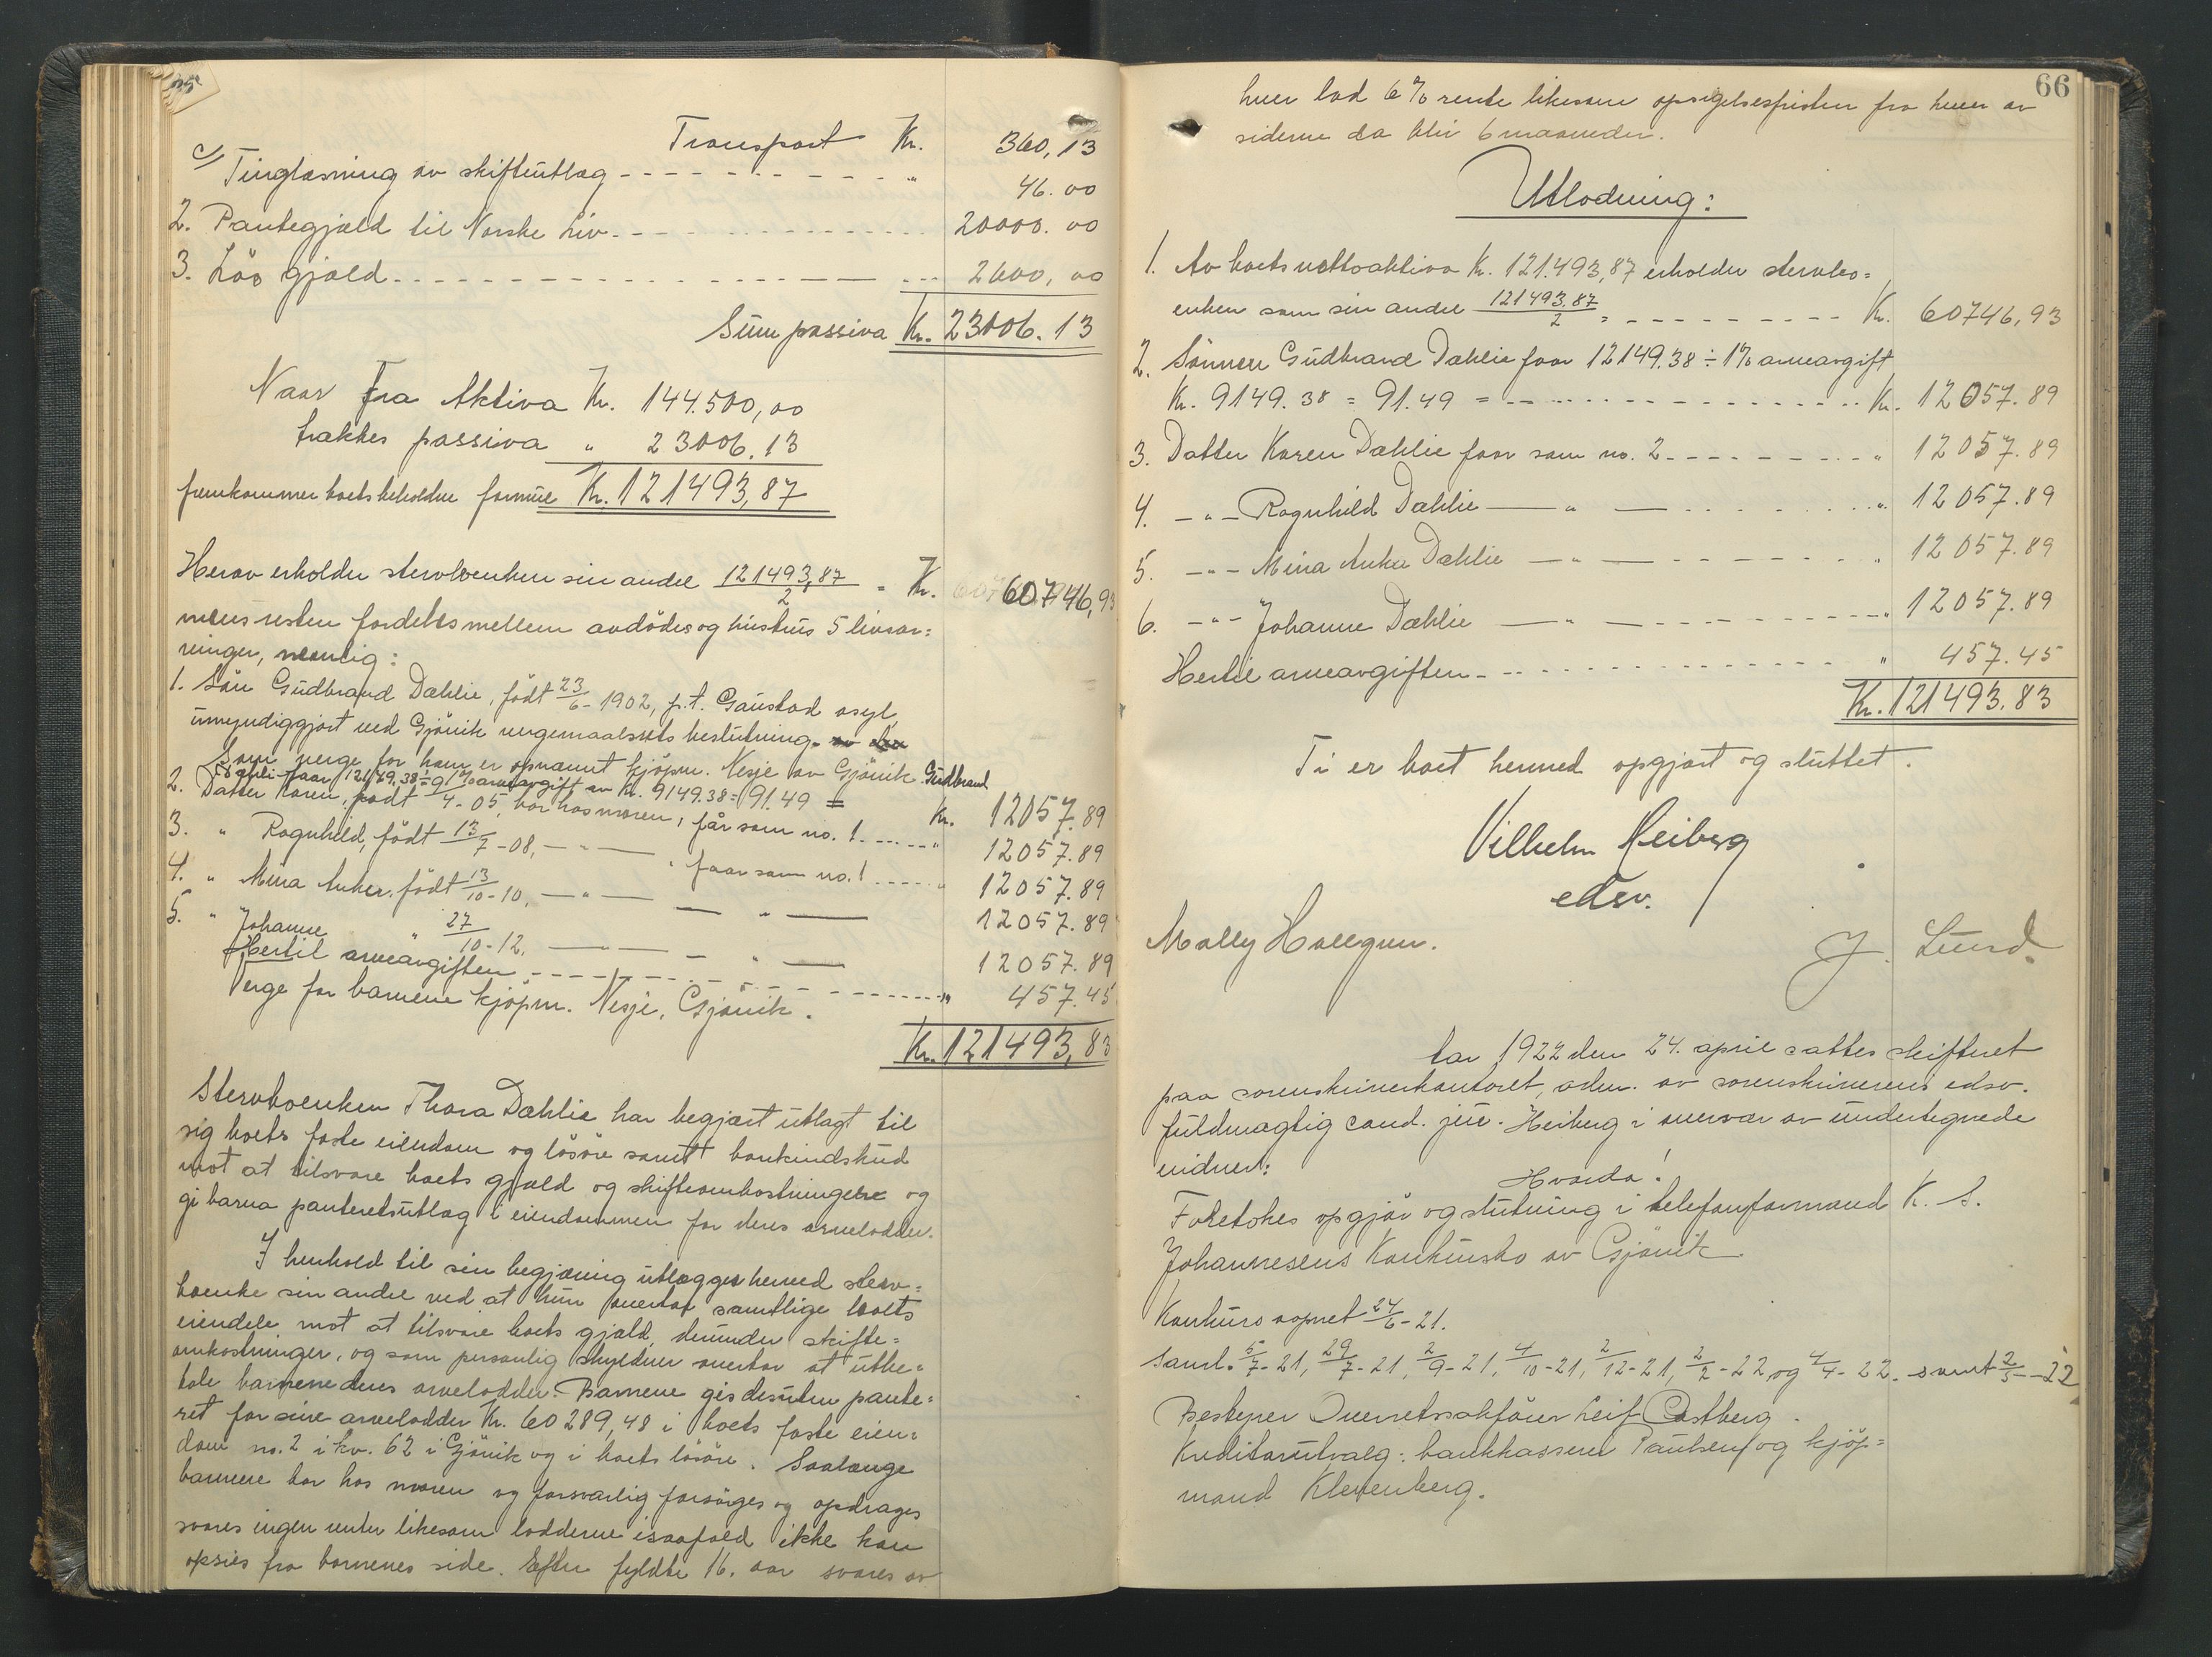 Transport Kr. 360,13
c) Tinglæsning av skifteutlæg " 46.00
2. Pantegjæld til Norske Liv 20000.00
3. Løs gjæld 2600,00
Sum passiva Kr. 23006.13
Naar fra Aktiva Kr. 144.500,00
trækkes passiva " 23006.13
fremkommer boets beholdne formue Kr. 121493,87
Herav erholder stervboenken sin andel 121493,87/2 = Kr. 60746,93
mens resten fordeles mellem avdødes og hustrus 5 livsar=
vinger, nemlig:
1. Søn Gudbrand Dæhlie, født 23/6-1902, p.t. Gaustad asyl,
umyndiggjort ved Gjøvik vergemaalsrets beslutning.
Som verge for ham er opnævnt kjøpm. Nesje av Gjøvik. Gudbrand
Dæhlie faar 12149.38 ÷ 1% arveavgift av Kr. 9149.38 = 91.49 = Kr. 12057.89
2. Datter Karen, født 9/4-05, bor hos moren, får som no. 1 " 12057.89
3. " Ragnhild, født 13/7-08, — " — " faar som no. 1 " 12057.89
4. " Mina Anker, født 13/10-10, — " — — " — 12057.89
5. " Johanne " 27/10-12, — " — — " — 12057.89
Hertil arveavgiften " 457.45
Verge for barnene kjøpm. Nesje, Gjøvik.
Kr. 121493,83
Stervboenken Thora Dæhlie har begjært utlagt til
sig boets faste eiendom og løsøre samt bankindskud
mot at tilsvare boets gjæld og skifteomkostningene og
gi barna panteretsutlæg i eiendommen for deres arvelodder.
I henhold til sin begjæring utlægges herved sterv=
boenke sin andel ved at hun overtar samtlige boets
eiendele mot at tilsvare boets gjæld, derunder skifte=
omkostninger, og som personlig skyldner overtar at utbe=
tale barnene deres arvelodder. Barnene gis desuten pante=
ret for sine arvelodder Kr. 60289,48 i boets faste eien=
dom no. 2 i kv. 62 i Gjøvik og i boets løsøre. Saalænge
barnene bor hos moren og forsvarlig forsørges og opdrages
svares ingen renter likesom lodderne isaafald ikke kan
opsies fra barnenes side. Efter fyldte 16. aar svares av
66
hver lod 6% rente likesom opsigelsesfristen fra hver av
siderne da blir 6 maaneder.
Utlodning:
1. Av boets nettoaktiva Kr. 121.493,87 erholder stervbo=
enken som sin andel 121493.87/2 = Kr. 60746,93
2. Sønnen Gudbrand Dæhlie faar 12149.38 ÷ 1% arveavgift
Kr. 9149.38 = 91.49 = Kr. 12057.89
3. Datter Karen Dæhlie faar som no. 2 " 12057.89
4. — " — Ragnhild Dæhlie — " — " 12057.89
5. — " — Mina Anka Dæhlie — " — " 12057.89
6. — " — Johanne Dæhlie — " — " 12057.89
Hertil arveavgiften " 457.45
Kr. 121493.83
Ti er boet hermed opgjort og sluttet.
Vilhelm Heiberg
edsv.
Molly Hallgren.
J. Lund.
Aar 1922 den 24. april sattes skifteret
paa sorenskriverkontoret, adm. av sorenskriverens edsv.
fuldmægtig cand. jur. Heiberg i nærvær av undertegnede
vidner:
Hvorda!
Foretokes opgjør og slutning i telefonformand K. S.
Johannesens Konkursbo av Gjøvik
Konkurs aapnet 24/6-21.
Saml. 5/7-21, 29/7-21, 2/9-21, 4/10-21, 2/12-21, 2/2-22 og 4/4-22. samt 2/5-22
Bestyrer Overretssakfører Leif Castberg.
Kreditorutvalg: bankkasserer Paulsen og kjøp=
mand Klevenberg.